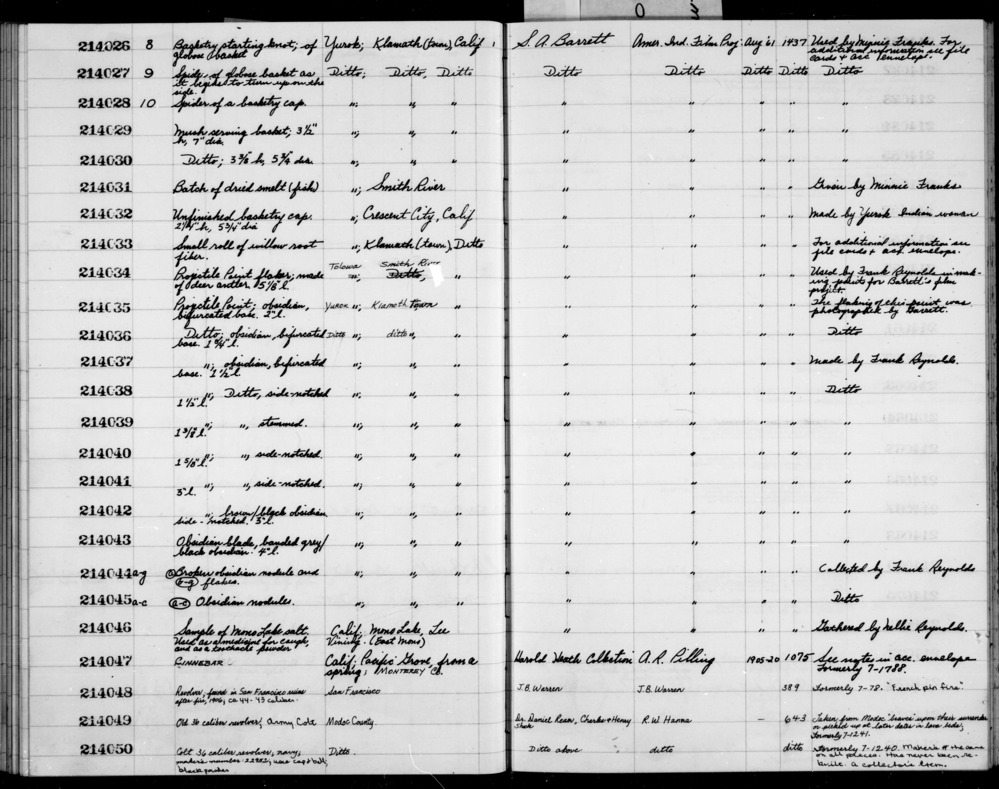 0
214026 8 Basketry starting knot, of globose basket Yurok; Klamath (town), Calif S. A. Barrett Amer. Ind. Film Proj. Aug '61 1437 Used by Minnie Franks. For additional information see file cards + acc envelope.
214027 9 Spider of globose basket as it begins to turn up on the side. Ditto; Ditto, Ditto Ditto Ditto Ditto Ditto Ditto
214028 10 Spider of a basketry cap. "; " " " " " " "
214029 Mush serving basket; 3½" h, 7" dia. "; " " " " " " "
214030 Ditto; h, dia. "; " " " " " " "
214031 Batch of dried smelt (fish) "; Smith River " " " " Given by Minnie Franks
214032 Unfinished basketry cap. h, 5¾" dia "; Crescent City, Calif " " " " Made by Yurok Indian woman
214033 Small roll of willow root fiber. "; Klamath (town), Ditto " " " " For additional information see file cards + acc. envelope.
214034 Projectile Point flaker; made of deer antler, 5⅛" l. Tolowa Smith River Ditto, " " " " Used by Frank Reynolds in making point for Barrett's film project.
214035 Projectile Point, obsidian, bifurcated base. 2" l. Yurok "; Klamath town " " " " " The flaking of this point was photographed by Barrett.
214036 Ditto; obsidian, bifurcated base. 1¾" l. Ditto ditto ", " " " " " Ditto
214037 "; obsidian, bifurcated base. 1½" l "; " " " " " " Made by Frank Reynolds.
214038 "; Ditto, side-notched 1½" l. "; " " " " " " Ditto
214039 "; ", stemmed. 1⅜" l. "; " " " " " " "
214040 "; ", side-notched. 1⅝" l. "; " " " " " " "
214041 "; ", side-notched. 3" l. "; " " " " " " "
214042 "; brown/black obsidian side-notched. 3" l. "; " " " " " " "
214043 Obsidian blade, banded grey/black obsidian. 4" l. "; " " " " " " "
214044 a-g (a) Broken obsidian nodule and (b-g) flakes. "; " " " " " " Collected by Frank Reynolds
214045 a-c (a-c) Obsidian nodules. "; " " " " " " Ditto
214046 Sample of Mono Lake salt. Used as a medicine for cough, and as a toothache powder Calif; Mono Lake, Lee Vining. (East Mono) " " " " Gathered by Nellie Reynolds.
214047 Cinnebar. Calif; Pacific Grove, from a spring; Monterey Co. Harold Heath Collection A. R. Pilling 1905-20 1075 See notes in acc. envelope Formerly 7-1788.
214048 Revolver, found in San Francisco ruins after fire, 1906, ca 44-45 caliber. San Francisco J.B. Warren J.B. Warren 389 Formerly 7-78. "French pin fire"
214049 Old 36 caliber revolver, Army Colt Modoc County. Dr. Daniel Ream, Charles & Henry R. W. Hanna — 643 Taken from Modoc braves upon their surrender or picked up at later dates in lava beds, Formerly 7-1241.
214050 Colt 36 caliber revolver, navy, maker's number uses cap & ball, black powder Ditto. Ditto above ditto ditto Formerly 7-1240. Maker's # the same on all pieces. Has never been rebuilt. A collector's item.